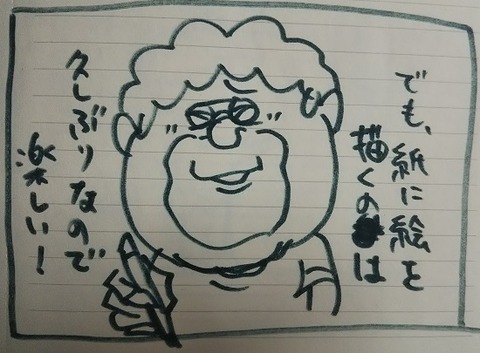 でも、紙に絵を
描くのは
久しぶりなので
楽しい!